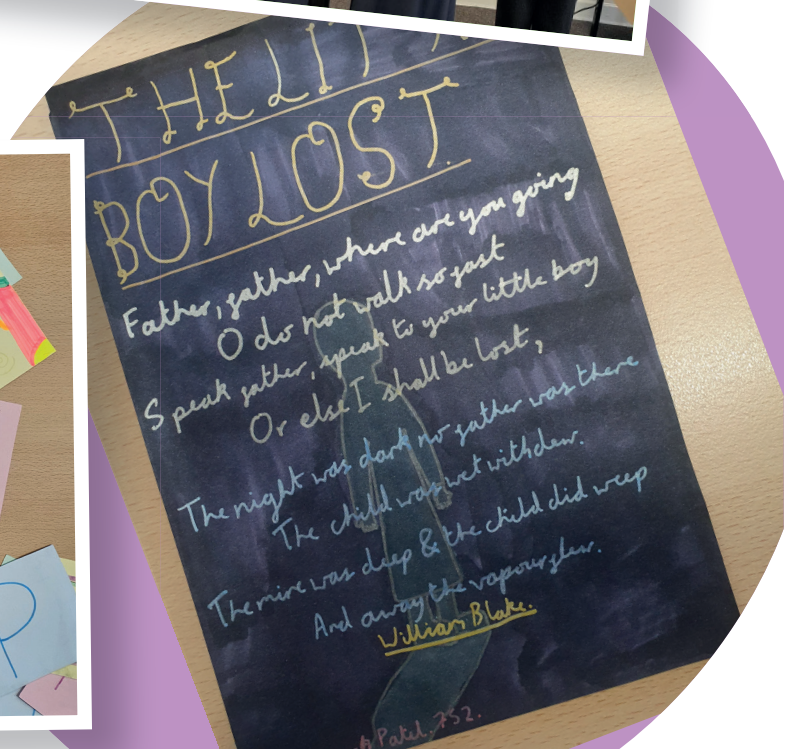 THE LITT
BOY LOST.
Father, father, where are you going
O do not walk so fast
Speak father, speak to your little boy
Or else I shall be lost,
The night was dark no father was there
The child was wet with dew.
The mire was deep & the child did weep
And away the vapour flew.
William Blake.
Patel. 7S2.
P